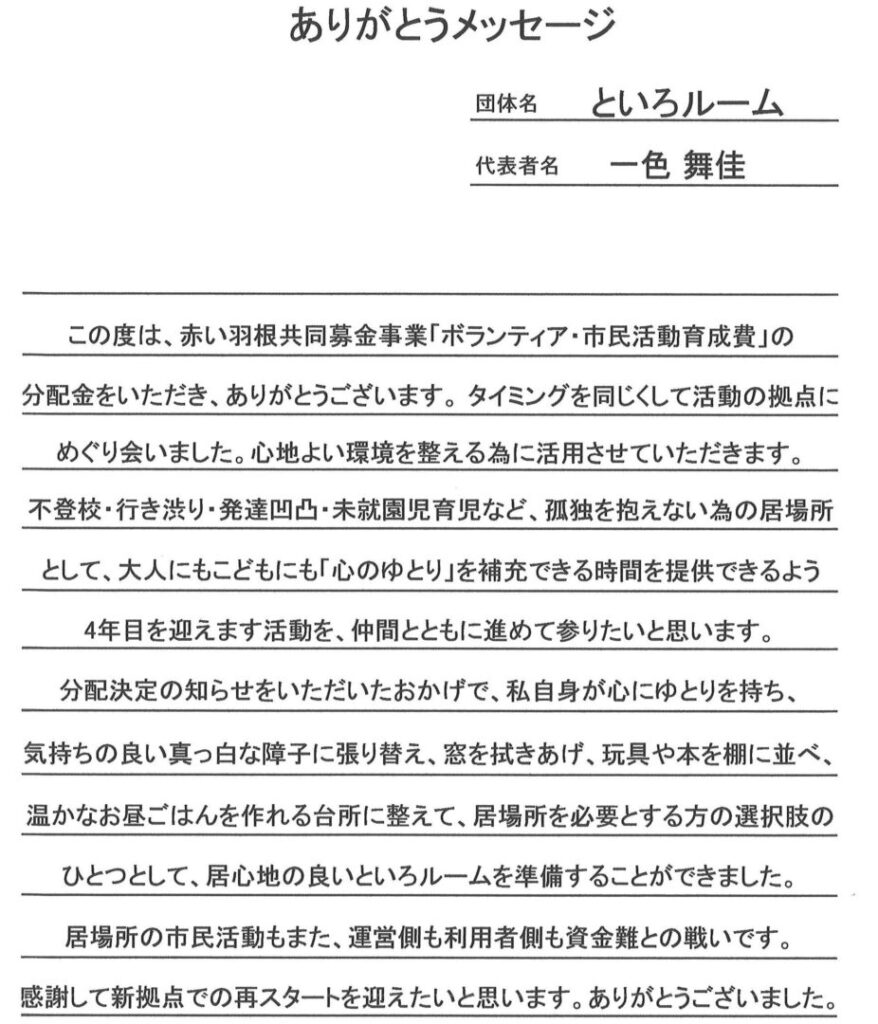 ありがとうメッセージ
団体名 といろルーム
代表者名 一色 舞佳
この度は、赤い羽根共同募金事業「ボランティア・市民活動育成費」の
分配金をいただき、ありがとうございます。タイミングを同じくして活動の拠点に
めぐり会いました。心地よい環境を整える為に活用させていただきます。
不登校・行き渋り・発達凹凸・未就園児育児など、孤独を抱えない為の居場所
として、大人にもこどもにも「心のゆとり」を補充できる時間を提供できるよう
4年目を迎えます活動を、仲間とともに進めて参りたいと思います。
分配決定の知らせをいただいたおかげで、私自身が心にゆとりを持ち、
気持ちの良い真っ白な障子に張り替え、窓を拭きあげ、玩具や本を棚に並べ、
温かなお昼ごはんを作れる台所に整えて、居場所を必要とする方の選択肢の
ひとつとして、居心地の良いといろルームを準備することができました。
居場所の市民活動もまた、運営側も利用者側も資金難との戦いです。
感謝して新拠点での再スタートを迎えたいと思います。ありがとうございました。